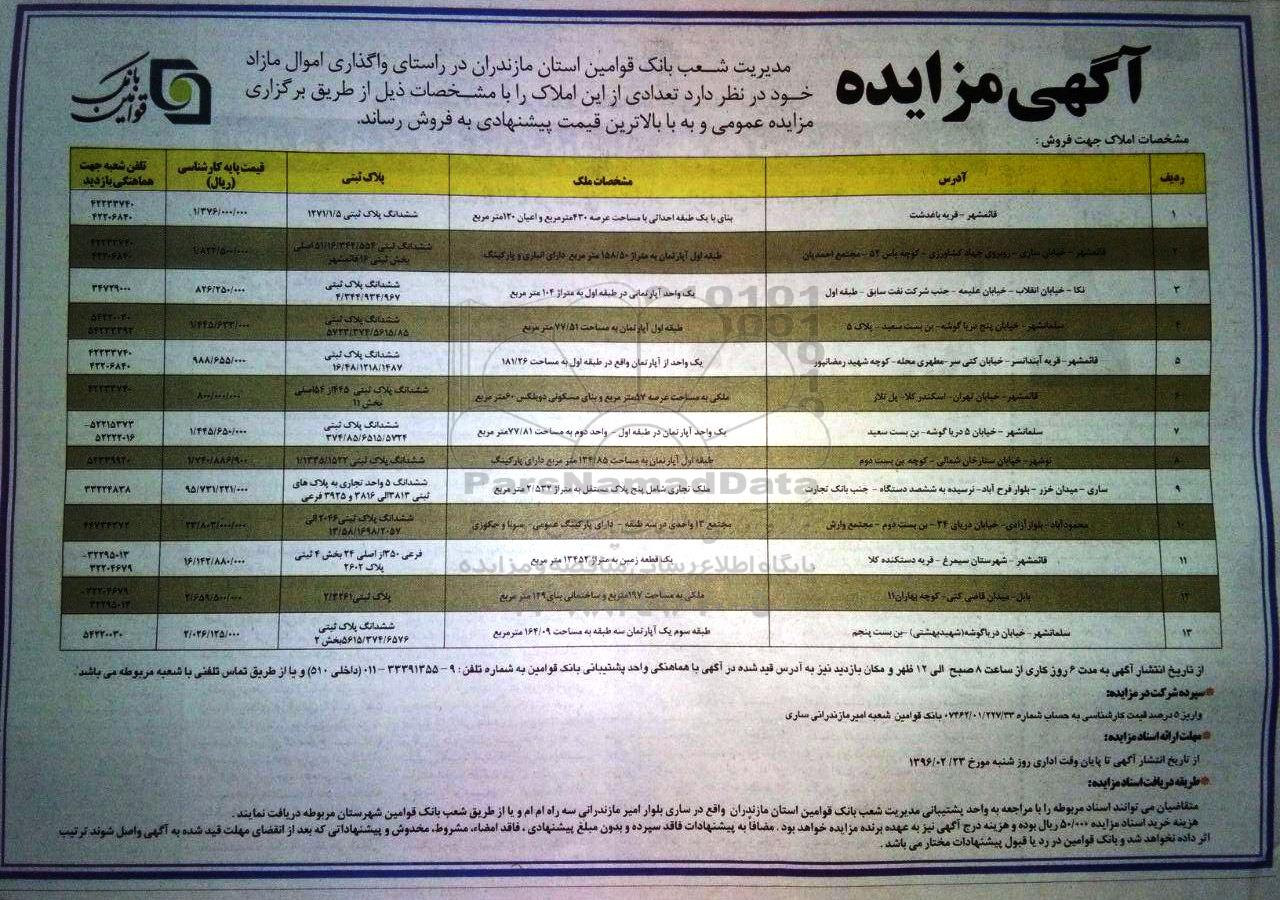 آگهی مزایده
مدیریت شعب بانک قوامین استان مازندران در راستای واگذاری اموال مازاد
خود در نظر دارد تعدادی از این املاک را با مشخصات ذیل از طریق برگزاری
مزایده عمومی و به با بالاترین قیمت پیشنهادی به فروش رساند.
بانک قوامین
مشخصات املاک جهت فروش :
ردیف آدرس مشخصات ملک پلاک ثبتی قیمت پایه کارشناسی (ریال) تلفن شعبه جهت هماهنگی بازدید
۱ قائمشهر - قریه باغدشت بنای با یک طبقه احداثی با مساحت عرصه ۴۳۰مترمربع و اعیان ۱۲۰متر مربع ششدانگ پلاک ثبتی ۱۲۷۱/۱/۵ ۱/۳۷۶/۰۰۰/۰۰۰ ۴۲۲۳۳۷۴۰ ۴۲۲۰۶۸۴۰
۲ قائمشهر - خیابان ساری - روبروی جهاد کشاورزی - کوچه یاس ۵۲ - مجتمع احمدیان طبقه اول آپارتمان به متراژ ۱۵۸/۵۰ متر مربع دارای انباری و پارکینگ ششدانگ ثبتی ۵۱/۱۶/۳۴۴/۵۵۴ اصلی بخش ثبتی ۱۶ قائمشهر ۱/۸۲۴/۵۰۰/۰۰۰ ۴۲۲۳۳۷۴۰ ۴۲۲۰۶۸۴۰
۳ نکا - خیابان انقلاب - خیابان علیمه - جنب شرکت نفت سابق - طبقه اول یک واحد آپارتمانی در طبقه اول به متراژ ۱۰۴ متر مربع ششدانگ پلاک ثبتی ۴/۳۴۴/۹۳۴/۹۶۷ ۸۲۶/۲۵۰/۰۰۰ ۳۴۷۲۹۰۰۰
۴ سلمانشهر - خیابان پنج دریا گوشه- بن بست سعید - پلاک ۵ طبقه اول آپارتمان به مساحت ۷۷/۵۱ متر مربع ششدانگ پلاک ثبتی ۵۷۲۳/۳۷۴/۵۶۱۵/۸۵ ۱/۴۴۵/۶۳۳/۰۰۰
۵ قائمشهر- قریه آبندانسر - خیابان کتی سر -مطهری محله- کوچه شهید رمضانپور یک واحد از آپارتمان واقع در طبقه اول به مساحت ۱۸۱/۲۶ ششدانگ پلاک ثبتی ۱۶/۴۸/۱۲۱۸/۱۴۸۷ ۹۸۸/۶۵۵/۰۰۰ ۴۲۲۳۳۷۴۰ ۴۲۲۰۶۸۴۰
۶ قائمشهر- خیابان تهران- اسکندر کلا- پل تلار ملکی به مساحت عرصه ۵۷متر مربع و بنای مسکونی دوبلکس ۶۰متر مربع ششدانگ پلاک ثبتی ۴۴۵از ۵۴اصلی بخش ۱۱ ۸۰۰/۰۰۰/۰۰۰ ۴۲۲۳۳۷۴۰
۷ سلمانشهر - خیابان ۵ دریا گوشه- بن بست سعید یک واحد آپارتمان در طبقه اول - واحد دوم به مساحت ۷۷/۸۱متر مربع ششدانگ پلاک ثبتی ۳۷۴/۸۵/۶۵۱۵/۵۷۲۴ ۱/۴۴۵/۶۵۰/۰۰۰ ۵۲۲۱۵۳۷۳- ۵۲۲۲۲۰۱۶
۸ نوشهر- خیابان ستارخان شمالی - کوچه بن بست دوم طبقه اول آپارتمان به مساحت ۱۳۴/۸۵ متر مربع دارای پارکینگ ششدانگ پلاک ثبتی ۱/۱۳۳۵/۱۵۲۲ ۱/۷۴۰/۸۸۶/۹۰۰ ۵۲۳۳۹۹۲۰
۹ ساری - میدان خزر - بلوار فرح آباد- نرسیده به ششصد دستگاه - جنب بانک تجارت ملک تجاری شامل پنج پلاک مستقل به متراژ ۲/۵۳۴ متر مربع ششدانگ ۵ واحد تجاری به پلاک های ثبتی ۳۸۱۳الی ۳۸۱۶ و ۳۹۲۵ فرعی ۹۵/۷۳۱/۲۲۱/۰۰۰ ۳۳۲۲۴۸۳۸
۱۰ محمودآباد- بلوار آزادی- خیابان دریای ۳۴- بن بست دوم - مجتمع وارش مجتمع ۱۳ واحدی در سه طبقه - دارای پارکینگ عمومی- سونا و جکوزی ششدانگ پلاک ثبتی ۲۰۴۶ الی ۱۳/۵۸/۱۶۹۸/۲۰۵۷ ۲۳/۸۰۳/۰۰۰/۰۰۰ ۴۴۷۳۴۳۷۲
۱۱ قائمشهر - شهرستان سیمرغ - قریه دستکنده کلا یک قطعه زمین به متراژ ۱۳۴۵۲ متر مربع فرعی ۳۵۰از اصلی ۲۴ بخش ۴ ثبتی پلاک ۲۶۰۲ ۱۶/۱۴۲/۸۸۰/۰۰۰ ۳۲۲۹۵۰۱۳- ۳۲۲۰۴۶۷۹
۱۲ بابل- میدان قاضی کتی- کوچه بهاران۱۱ ملکی به مساحت ۱۹۷متربع و ساختمانی بنای۱۴۹ متر مربع پلاک ثبتی۲/۳۲۶۱ ۲/۶۵۹/۵۰۰/۰۰۰ ۳۲۲۰۴۶۷۹- ۳۲۲۹۵۰۱۳
۱۳ سلمانشهر- خیابان دریاگوشه(شهیدبهشتی) -بن بست پنجم طبقه سوم یک آپارتمان سه طبقه به مساحت ۱۶۴/۰۹ مترمربع ششدانگ پلاک ثبتی ۵۶۱۵/۳۷۴/۶۵۷۶بخش ۲ ۲/۰۲۶/۱۲۵/۰۰۰ ۵۴۲۲۰۰۳۰
ParsNamadData
پایگاه اطلاع رسانی مناقصه و مزایده
از تاریخ انتشار آگهی به مدت ۶ روز کاری از ساعت ۸ صبح الی ۱۲ ظهر و مکان بازدید نیز به آدرس قید شده در آگهی با هماهنگی واحد پشتیبانی بانک قوامین به شماره تلفن : ۹ - ۳۳۳۹۱۳۵۵ -۰۱۱ (داخلی ۵۱۰) و یا از طریق تماس تلفنی با شعبه مربوطه می باشد .
*سپرده شرکت در مزایده:
واریز ۵ درصد قیمت کارشناسی به حساب شماره ۰۷۴۶۲/۰۱/۲۲۷/۳۳ بانک قوامین شعبه امیرمازندرانی ساری
*مهلت ارائه اسناد مزایده:
از تاریخ انتشار آگهی تا پایان وقت اداری روز شنبه مورخ ۲۳/ ۰۲/ ۱۳۹۶
*طریقه دریافت اسناد مزایده:
متقاضیان می توانند اسناد مربوطه را با مراجعه به واحد پشتیبانی مدیریت شعب بانک قوامین استان مازندران واقع در ساری بلوار امیر مازندرانی سه راه ام ام و یا از طریق شعب بانک قوامین شهرستان مربوطه دریافت نمایند .
هزینه خرید اسناد مزایده ۵۰/۰۰۰ ریال بوده و هزینه درج آگهی نیز به عهده برنده مزایده خواهد بود . مضافاً به پیشنهادات فاقد سپرده و بدون مبلغ پیشنهادی ، فاقد امضاء، مشروط، مخدوش و پیشنهاداتی که بعد از انقضای مهلت قید شده به آگهی واصل شوند ترتیب
اثر داده نخواهد شد و بانک قوامین در رد یا قبول پیشنهادات مختار می باشد .